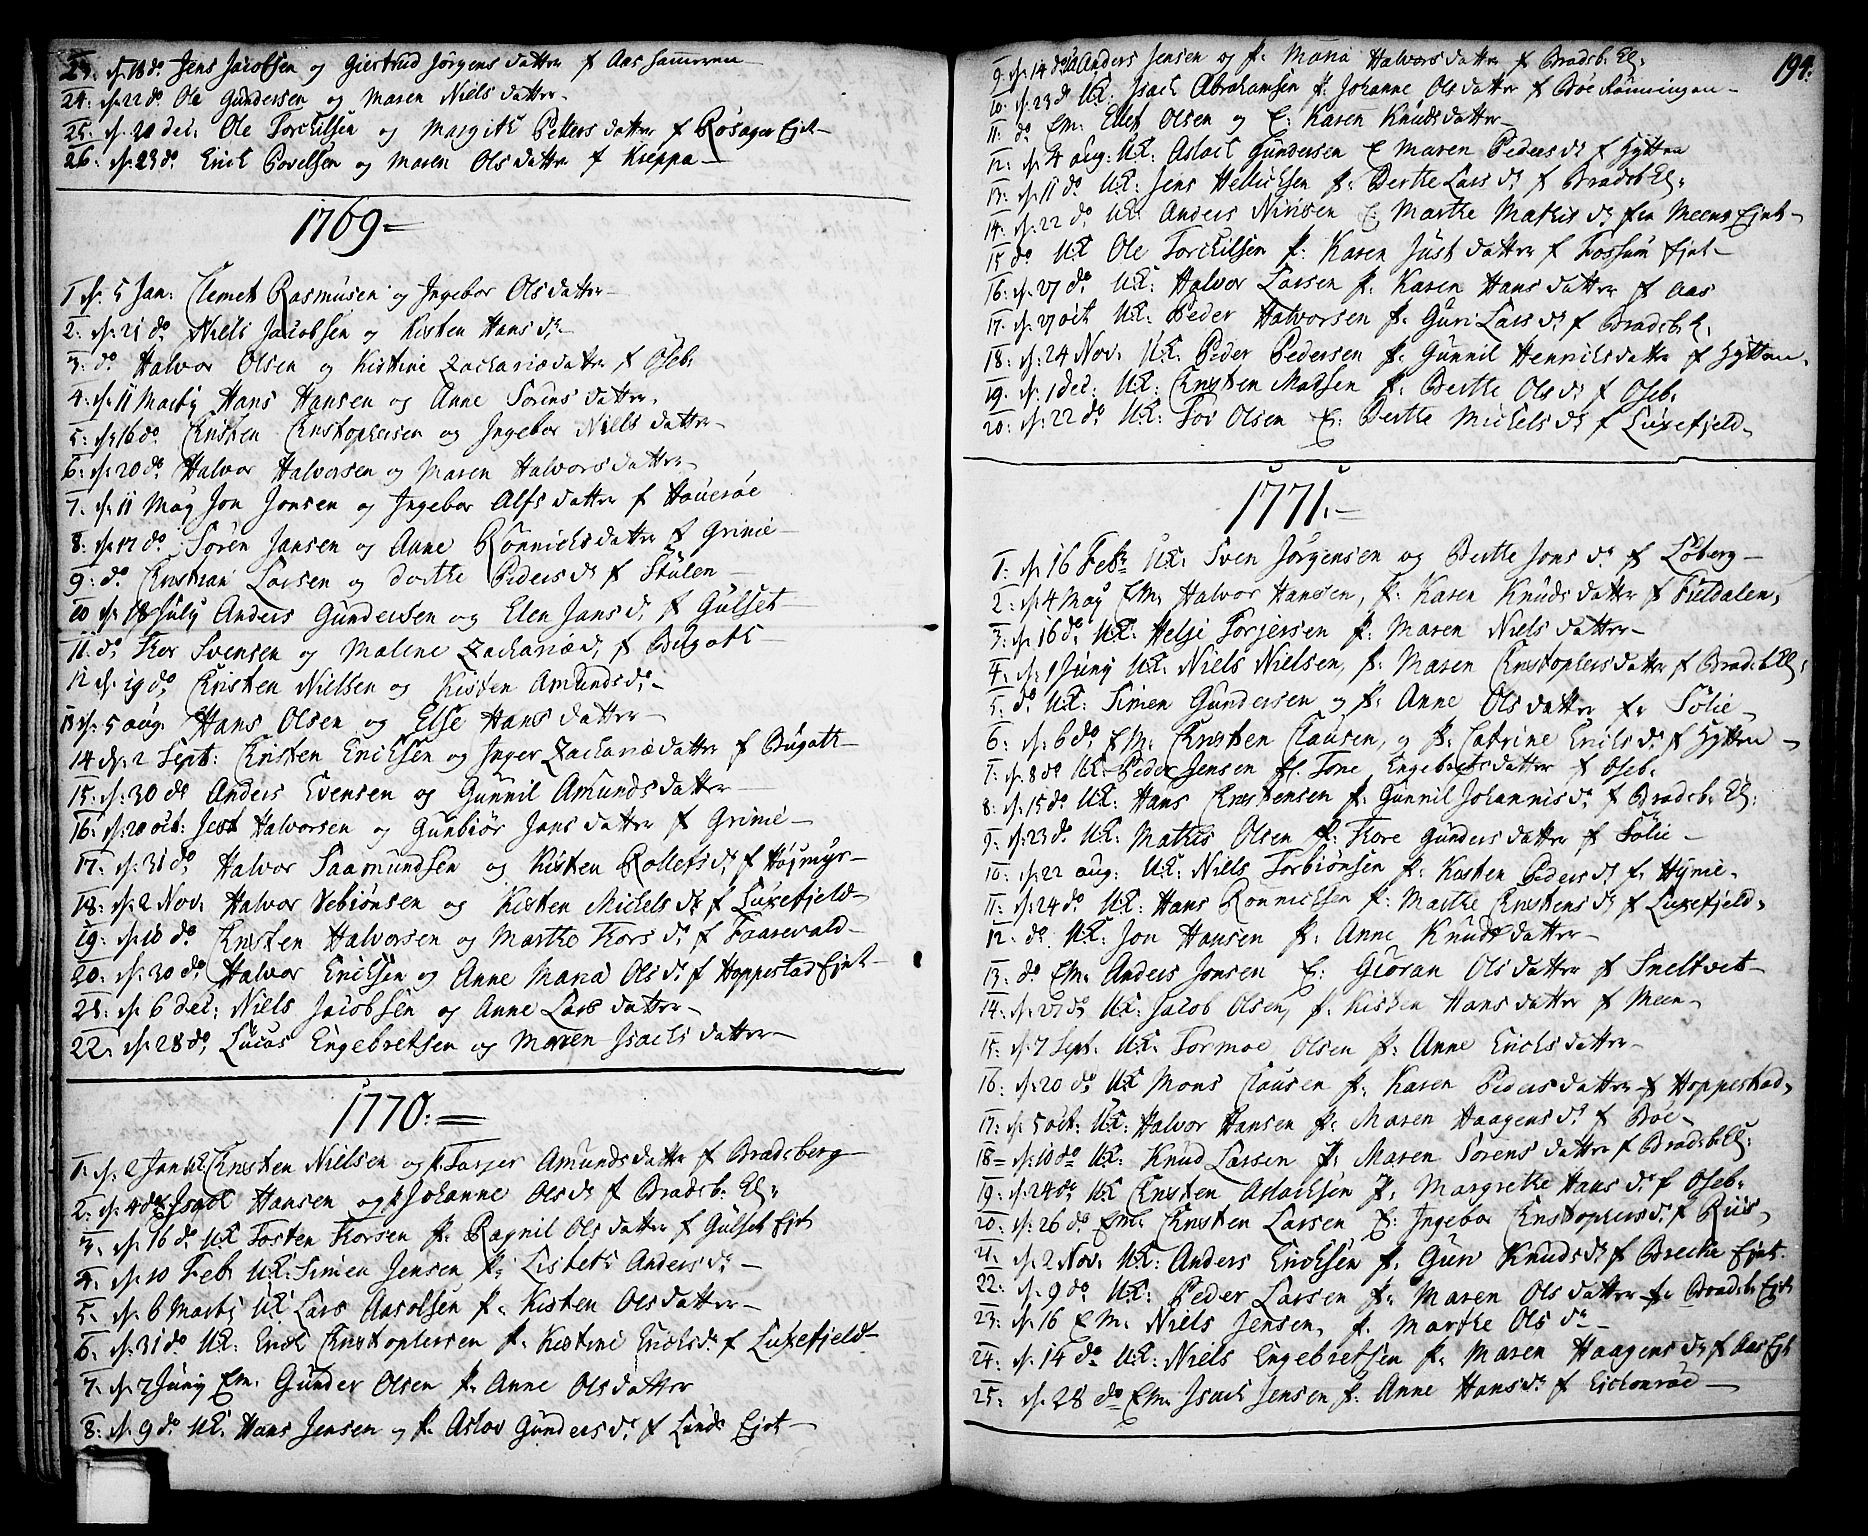 23: d. 18 do. Jens Jacobsen og Giertrud Jörgens datter f Aas Sammeren
24: d. 22 do Ole Gundersen og Maren Niels datter
25: d. 20 dec: Ole Torchilsen og Margith Petters datter f Rosager Ejet
26: d. 23 do. Erich Povelsen og Maren Ols datter f Kreppa
1769
1 d. 5 Jan: Clemet Rasmusen og Ingebor Olsdatter
2: d. 21 do Niels Jacobsen og Kisten Hans dr.
3: do Halvor Olsen og Kistine Zachariædatter f Oseb.
4: d. 11 Martij Hans Hansen og Anne Sörens datter.
5: d. 16 do. Christen Christophersen og Ingebor Niels datter
6: d. 20 do. Halvor Halvorsen og Maren Halvors datter
7. d. 11 Maj Jon Jonsen og Ingebor Alfs datter f Houeröe
8: d. 17 do. Sören Jansen og Anne Rönnichsdatter f Grinie
9: do. Christian Larsen og Dorthe Peders dr f Stulen
10 d. 18 July Anders Gundersen og Elen Jans d. f Gulset
11. do. Thor Svensen og Malene Zachariæ d. f Bugoth
12 d. 19 do. Christen Nielsen og Kisten Amunds dr.
13 d. 5 aug. Hans Olsen og Else Hans datter
14 d. 2 Sept: Christen Erichsen og Inger Zachariædatter f Bugoth
15: d. 30 do Anders Evensen og Gunnil Amunds datter
16: d. 20 oct: Jest Halvorsen og Gunbiör Jans datter f Grinie
17. d. 31 do. Halvor Saamundsen og Kisten Rollefs d. f Höjmyr
18: d. 2 Nov. Halvor Vebiönsen og Kisten Michels dr f Luxefjeld
19: d. 10 do. Christen Halvorsen og Marthe Thors dr. f Faarevald
20: d. 30 do. Halvor Erichsen og Anne Maria Ols dr. f Hoppestad Ejet
21: d. 6 dec: Niels Jacobsen og Anne Lars datter
22: d. 28 do. Lucas Engebretsen og Maren Isachs datter
1770:
1: d. 2 Jan UK Christen Nielsen og f. Torjer Amunds datter f Bradsberg
2: d. 4 do Isach Hansen og f. Johanne Ols dr f Bradsb. El:
3: d. 16 do. UK Tosten Thorsen f. Ragnil Ols datter f Gulset Ejet
4: d. 10 Feb. UK: Simen Jensen f. Lisbeth Anders dr.
5: d. 6 Martij UK Lars Aasolsen f. Kisten Ols datter
6: d. 31 do. UK. Erich Christophersen f. Kistine Erichs dr. f Luxefjeld
7: d. 7 Junij Em. Gunder Olsen f. Anne Ols datter
8: d. 9 do. UK. Hans Jensen og f. Aslov Gunders dr. f Lunds Ejet
194.
9: d. 14 do Anders Jensen og f. Maria Halvors datter f Bradsb. El:
10: d. 23 do UK. Isach Abrahamsen f. Johanne Ols datter f Böe Rönningen
11: do. Em. Ellef Olsen og E: Karen Knuds datter
12: d. 4 aug. UK: Aslach Gundersen E Maren Peders dr f Hytten
13: d. 11 do UK: Jens Hellichsen f. Berthe Lars dr. f Bradsb El:
14: d. 22 do. UK. Anders Nirisen E. Marthe Mathis dr fra Meens Ejet
15 do. UK Ole Torchilsen f. Karen Just datter f Fossum Ejet
16: d. 27 do. UK. Halvor Larsen f. Karen Hans datter f Aas
17. d. 27 oct. UK. Peder Halvorsen f. Guri Lars dr f Bradsb. E.
18: d. 24 Nov. UK. Peder Pedersen f. Gunnil Henrichsdatter f Hytten
19. d. 1 dec: UK: Christen Matsen f. Berthe Ols dr f Oseb.
20: d. 22 do UK: Tov Olsen E: Berthe Michels dr f Luxefjeld
1771.
1: d. 16 Febr UK. Sven Jörgensen og Berthe Jons dr. f Löberg
2: d. 4 Maj Em. Halvor Hansen, f. Karen Knuds datter f Fieldalen.
3: d. 16 do. UK. Helje Torjersen f. Maren Niels datter
4. d. 1 Junij UK. Niels Nielsen, f. Maren Christophersdatter f Bradsb El:
5. do UK: Simen Gundersen og f. Anne Ols datter fr Sölie
6: d. 6 do. Em. Christen Clausen, og f. Catrine Erichs dr. f Hytten
7: d. 8 do UK. Peder Jensen f. Tone Engebretsdatter f Oseb.
8: d. 15 do UK: Hans Christensen f. Gunnil Johannis dr. f Bradsb. El:
9: d. 23 do. UK: Mathis Olsen f. Thore Gunders datter f Sölie
10: d. 22 aug: UK. Niels Torbiönsen f. Kisten Peders dr. f. Hynie
11: d. 24 do UK: Hans Rönnichsen f. Marthe Christens dr f Luxefjeld.
12. do. UK: Jon Hansen f. Anne Knuds datter
13: do Em. Anders Jonsen E: Gioran Ols datter f Sneltvet
14: d. 27 do UK: Jacob Olsen, f. Kisten Hans datter f Meen
15: d. 7 Sept. UK. Tormoe Olsen f. Anne Erichs datter
16: d. 20 do. UK Mons Clausen f. Karen Peders datter f Hoppestad.
17: d. 5 oct: UK: Halvor Hansen f. Maren Haagens dr. f Böe
18 d. 10 do UK: Knud Larsen f. Maren Sörens datter f Bradsb El:
19: d. 24 do. UK Christen Aslachsen f. Margrethe Hans dr. f Oseb.
20: d. 26 do. Em. Christen Larsen E: Ingebor Christophers d. f Riis
21: d. 2 Nov. UK: Anders Erichsen f. Guri Knuds dr f Brecke Ejet.
22: d. 9 do UK. Peder Larsen f. Maren Ols datter fr Bradsb Ejet
23: d. 16 Em. Niels Jensen, f. Marthe Ols dr
24: d. 14 do. UK: Niels Engebretsen f. Maren Haagens dr f Aas Ejet
25: d. 28 do Em. Isach Jensen f. Anne Hans dr. f Lichonröd